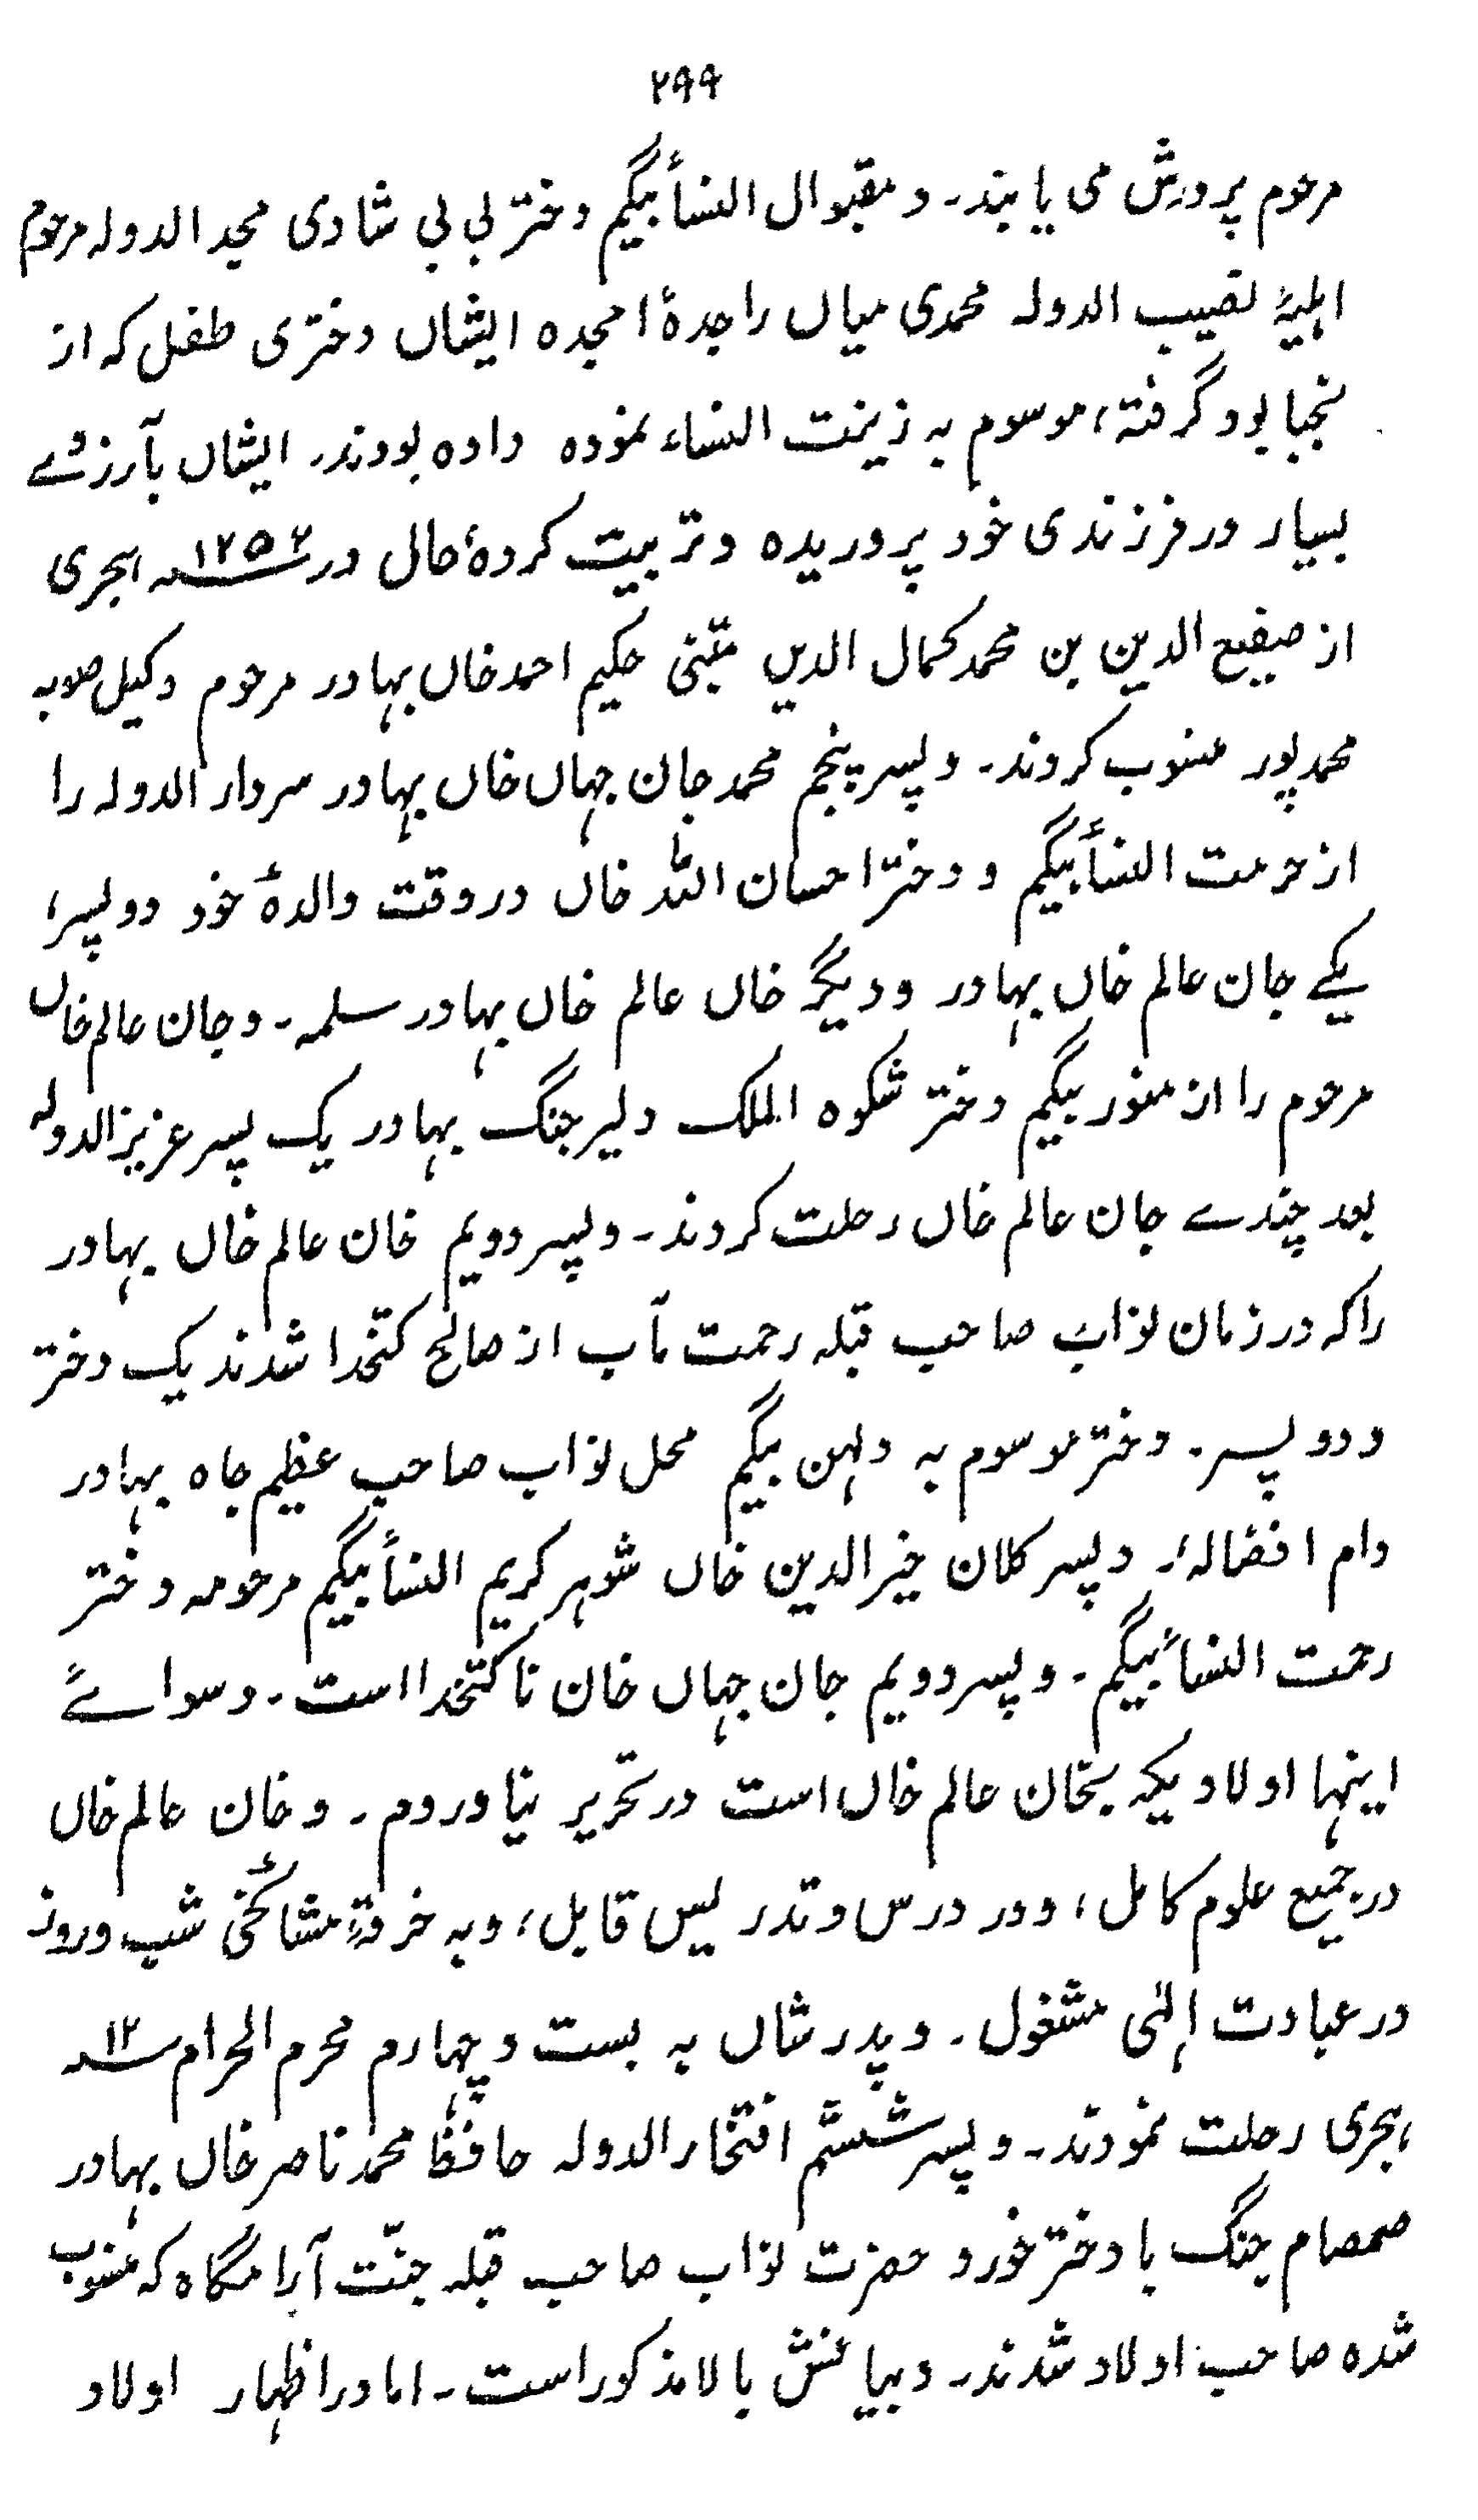 ۲۹۹
مرحوم پرورش می یابند۔ و مقبوال النسأبیگم دختر بی بی شادی مجید الدولہ مرحوم
اہلیۂ نقیب الدولہ محمدی میاں راجدۂ امجدہ ایشاں دختری طفل کہ از
نجبا بود گرفتہ، موسوم بہ زینت النساء نمودہ دادہ بودند۔ ایشاں بآرزوئے
بسیار در فرزندی خود پروریدہ و تربیت کردۂ حال در ۱۲۵۲ ہجری
از الدین بن محمد کمال الدین متبنٰی حکیم احمد خاں بہادر مرحوم وکیل صوبہ
محمدپور منسوب کردند۔ و پسر پنجم محمد جان جہاں خاں بہادر سردار الدولہ را
از حرمت النسأبیگم و دختر احسان اللہ خاں در وقت والدۂ خود دو پسر،
یکے جان عالم خاں بہادر و دیگر خاں عالم خاں بہادر سلمہ۔ و جان عالم خاں
مرحوم را از منور بیگم دختر شکوہ الملک دلیر جنگ بہادر یک پسر عزیز الدولہ
بعد چندے جان عالم خاں رحلت کردند۔ و پسر دویم خان عالم خاں بہادر
را کہ در زمان نواب صاحب قبلہ رحمت مآب از صالح کتخدا شدند یک دختر
و دو پسر۔ دختر موسوم بہ دلہن بیگم محل نواب صاحب عظیم جاہ بہادر
دام افضالہٗ۔ و پسر کلان خیر الدین خاں شوہر کریم النسأبیگم مرحومہ دختر
رحمت النسأبیگم۔ و پسر دویم جان جہاں خان نا کتخدا است۔ و سوائے
اینہا اولادیکہ بخان عالم خاں است در تحریر نیاوردم۔ و خان عالم خاں
در جمیع علوم کامل، و در درس و تدریس قابل، و بہ خرقۂ مشائخی شب و روز
در عبادت الٰہی مشغول۔ و پدر شاں بہ بست و چہارم محرم الحرام ۱۲
ہجری رحلت نمودند۔ و پسر ششم افتخار الدولہ حافظ محمد ناصر خاں بہادر
صمصام جنگ با دختر خورد حضرت نواب صاحب قبلہ جنّت آرامگاہ کہ منسوب
شدہ صاحب اولاد شدند۔ و بیانش بالا مذکور است۔ اما در اظہار اولاد